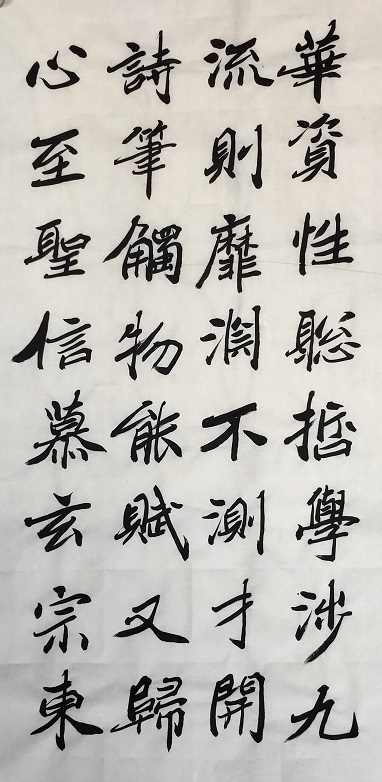 華資性聡哲學涉九
流則靡淵不測才開
詩筆觸物能賦又歸
心至聖信慕玄宗東